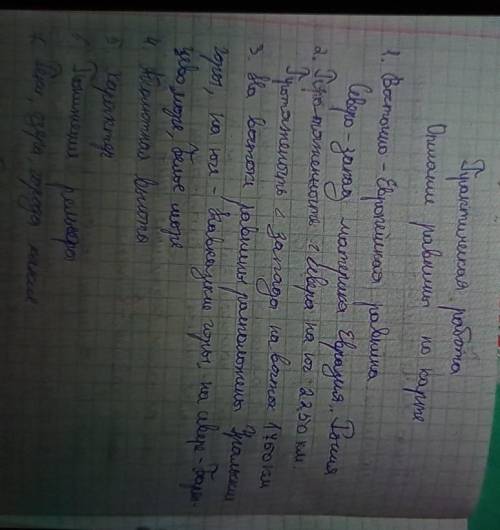 Практическая работа
Описание равнины по карте
1. Восточно - Европейская равнина
Северо - запад материка Евразия, Россия
2. Протяженность с севера на юг 2250 км.
Протяженность с запада на восток 1760 км
3. На востоке равнины расположены Уральские
горы, на юге - Кавказские горы, на севере - Барен-
цево море, Белое море
4 Абсолютная высота
5
6 Понижения рельефа
7. Реки, озера